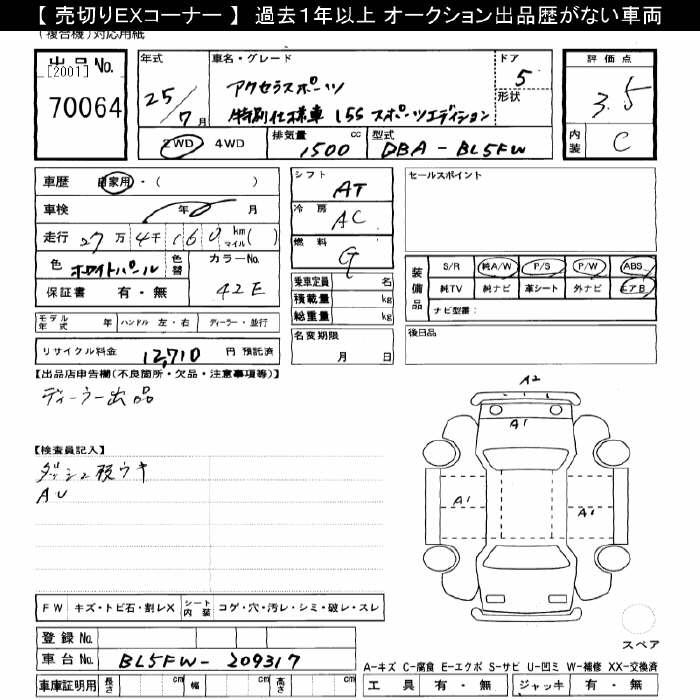 【 売切りEXコーナー 】 過去1年以上 オークション出品歴がない車両
(複合機)対応用紙
出品No.
[2001]
70064
年式
25/7月
車名・グレード
アクセラスポーツ
特別仕様車 15S スポーツエディション
ドア
5
形状
評価点
3.5
内装
C
2WD 4WD
排気量
1500
cc
型式
DBA-BL5FW
車歴
自家用・( )
車検
年 月
走行
27万4千160 km マイル( )
色
ホワイトパール
色替
カラーNo.
42E
保証書 有・無
シフト
AT
冷房
AC
燃料
G
乗車定員 名
積載量 kg
総重量 kg
名変期限
月 日
セールスポイント
装備品
S/R 純A/W P/S P/W ABS
純TV 純ナビ 革シート 外ナビ エアB
ナビ型番:
後日品
モデル年式 年 ハンドル 左・右 ディーラー・並行
リサイクル料金 12,710 円 預託済
【出品店申告欄(不良箇所・欠品・注意事項等)】
ディーラー出品
【検査員記入】
AU
A2
A1
A1
A1
FW キズ・トビ石・割レX シート内装 コゲ・穴・汚レ・シミ・破レ・スレ
登録No.
車台No. BL5FW-209317
車庫証明用 長さ cm 幅 cm 高さ cm
スペア
A-キズ C-腐食 E-エクボ S-サビ U-凹ミ W-補修 XX-交換済
工具 有・無 ジャッキ 有・無